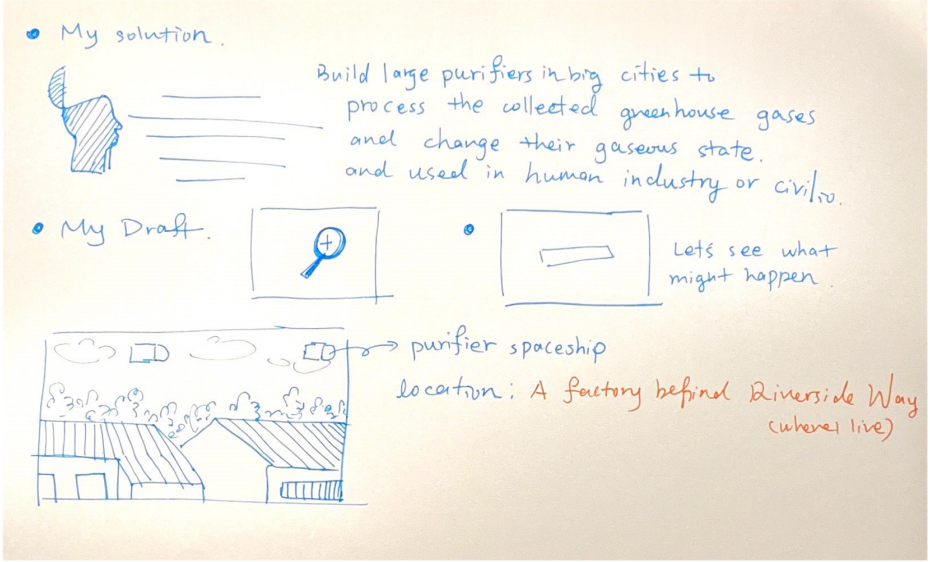 My solution.
Build large purifiers in big cities to
process the collected greenhouse gases
and change their gaseous state.
and used in human industry or civil
My Draft.
Let's see what
might happen.
purifier spaceship
location: A factory behind Riverside Way
(where I live)